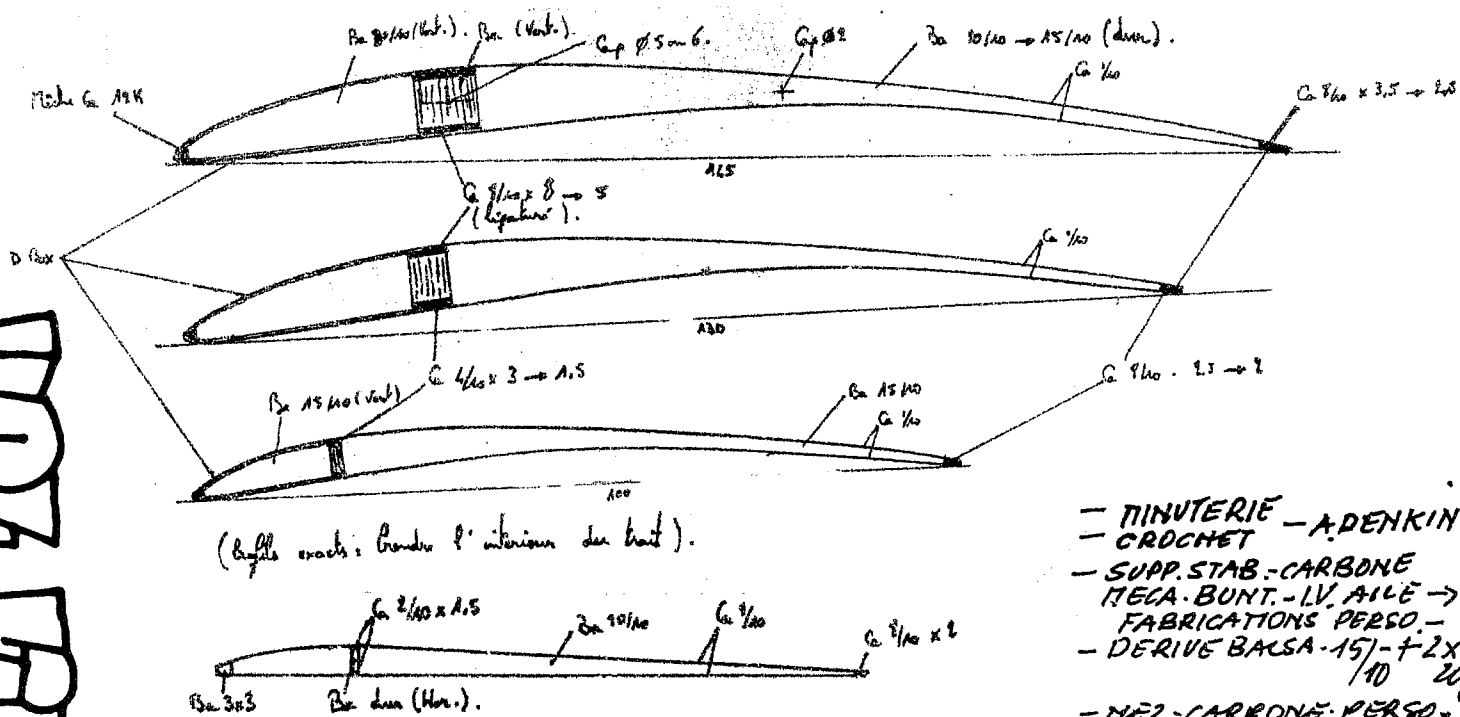 Ba 20/10 (Vert.). Ba (Vert.).
CaP Ø 5 ou 6.
CaP Ø 2
Ba 20/10 → 15/10 (dur).
Ca 1/10
Mèche Ca 12K
Ca 8/10 x 3,5 → 2,5
145
Ca 8/10 x 8 → 5
(ligaturé).
D Box
Ca 1/10
130
Ca 4/10 x 3 → 1,5
Ca 8/10 . 2.5 → 2
Ba 15/10 (Vert)
Ba 15/10
Ca 1/10
100
(Profils exacts : Prendre l'intérieur du trait).
Ca 2/10 x 1,5
Ba 10/10
Ca 1/10
Ca 8/10 x 2
Ba 3x3
Ba dur (Hor.).
- MINUTERIE - A.DENKIN
- CROCHET
- SUPP. STAB.-CARBONE
MECA. BUNT. - I.V. AILE →
FABRICATIONS PERSO. -
- DERIVE BALSA. 15/10 - + 2x
20
- NEZ - CARBONE - PERSO.